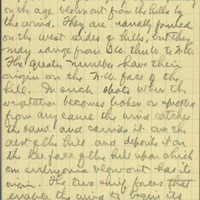 on the age blowout from the hills by
the wind. They are usually found
on the west sides of hills, but they
may range from S.W. thru to N.W.
The greater number have their
origin on the N.W. face of the
hill. In such spots when the
vegetation becomes broken or
from any cause the wind catches
the sand and carries it over the
crest of the hill and deposits it on
the lee face of the hill upon which
an embryonic blowout has its
The two chief forces that
enable the wind to begin its